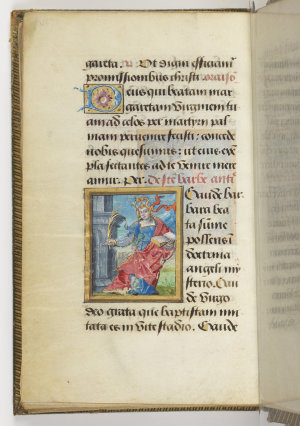 gareta. ℟. Ut digni efficiam᷒
promissionibus christi. oratio
Deus qui beatam mar
garetam virginem tu
am ad celos per martyrii pal
mam pervenire fecisti: concede
nobis quesumus: ut eius exem
pla sectantes ad te venire mere
amur. Per. De scē barbe antī.
Gaude bar
bara bea
ta sume
pollens ī
doctrina
angeli my
sterio. Gau
de virgo
deo grata que baptistam imi
tata es in vite stadio. Gaude